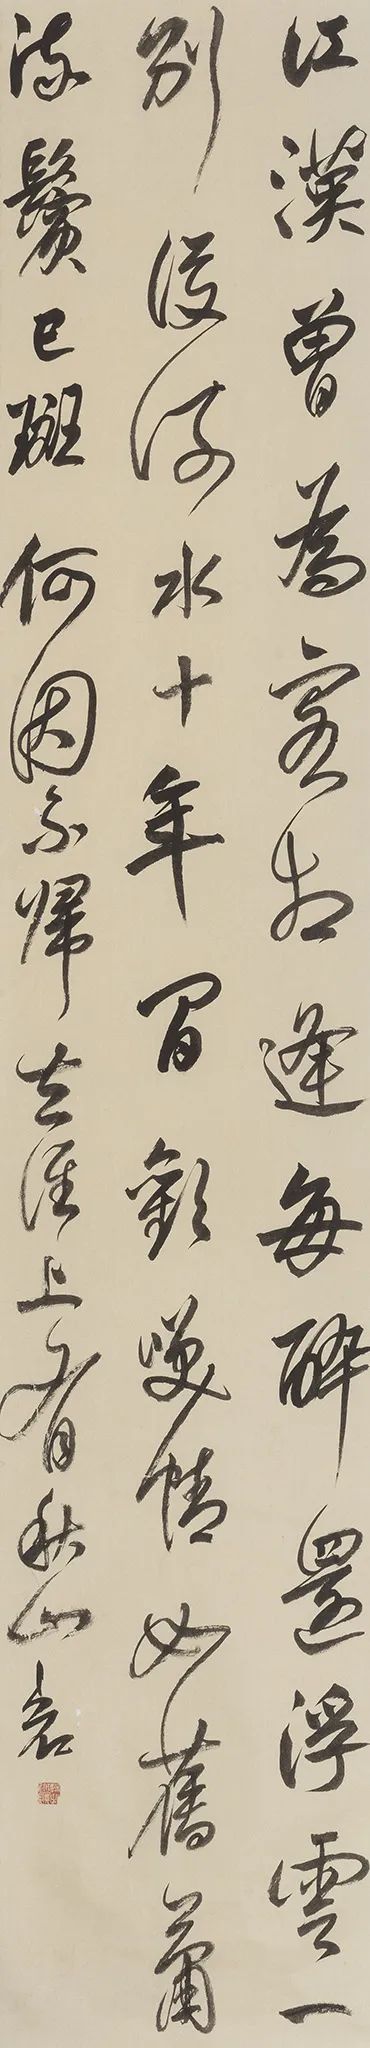 江漢曾為客相逢每醉還浮雲一
別後流水十年間歡咲情如舊蕭
疏鬢已斑何因不歸去淮上有秋山